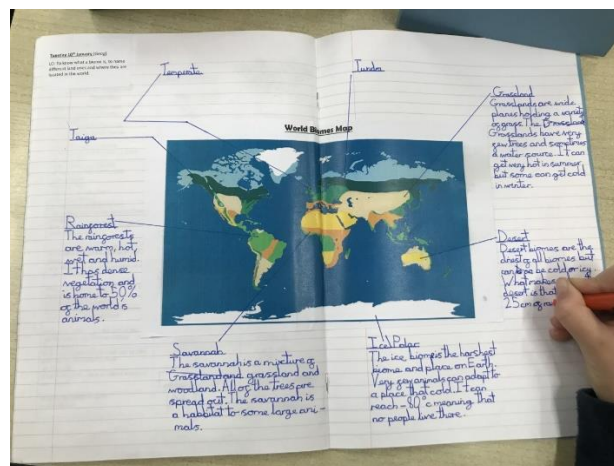 Tuesday 10th January
LO: To know what a biome is, to name
different land areas and where they are
located in the world.
Temperate
Tundra
Taiga
World Biomes Map
Grassland
Grasslands are wide
planes holding a variety
of grass. The
Grasslands have very
few trees and sometimes
a water source. It can
get very hot in summer
but some can get cold
in winter.
Rainforest
The rainforests
are warm, hot,
wet and humid.
It has dense
vegetation and
is home to 50%
of the world's
animals.
Desert
Desert biomes are the
driest of all biomes but
can be cold or icy.
What makes
desert is that
25cm of
Savannah
The savannah is a mixture of
grassland and
woodland. All of the trees are
spread out. The savannah is
a habitat to some large ani-
mals.
Ice/Polar
The ice biome is the harshest
biome and place on Earth.
Very few animals can adapt to
a place that cold. It can
reach -80°c meaning that
no people live there.